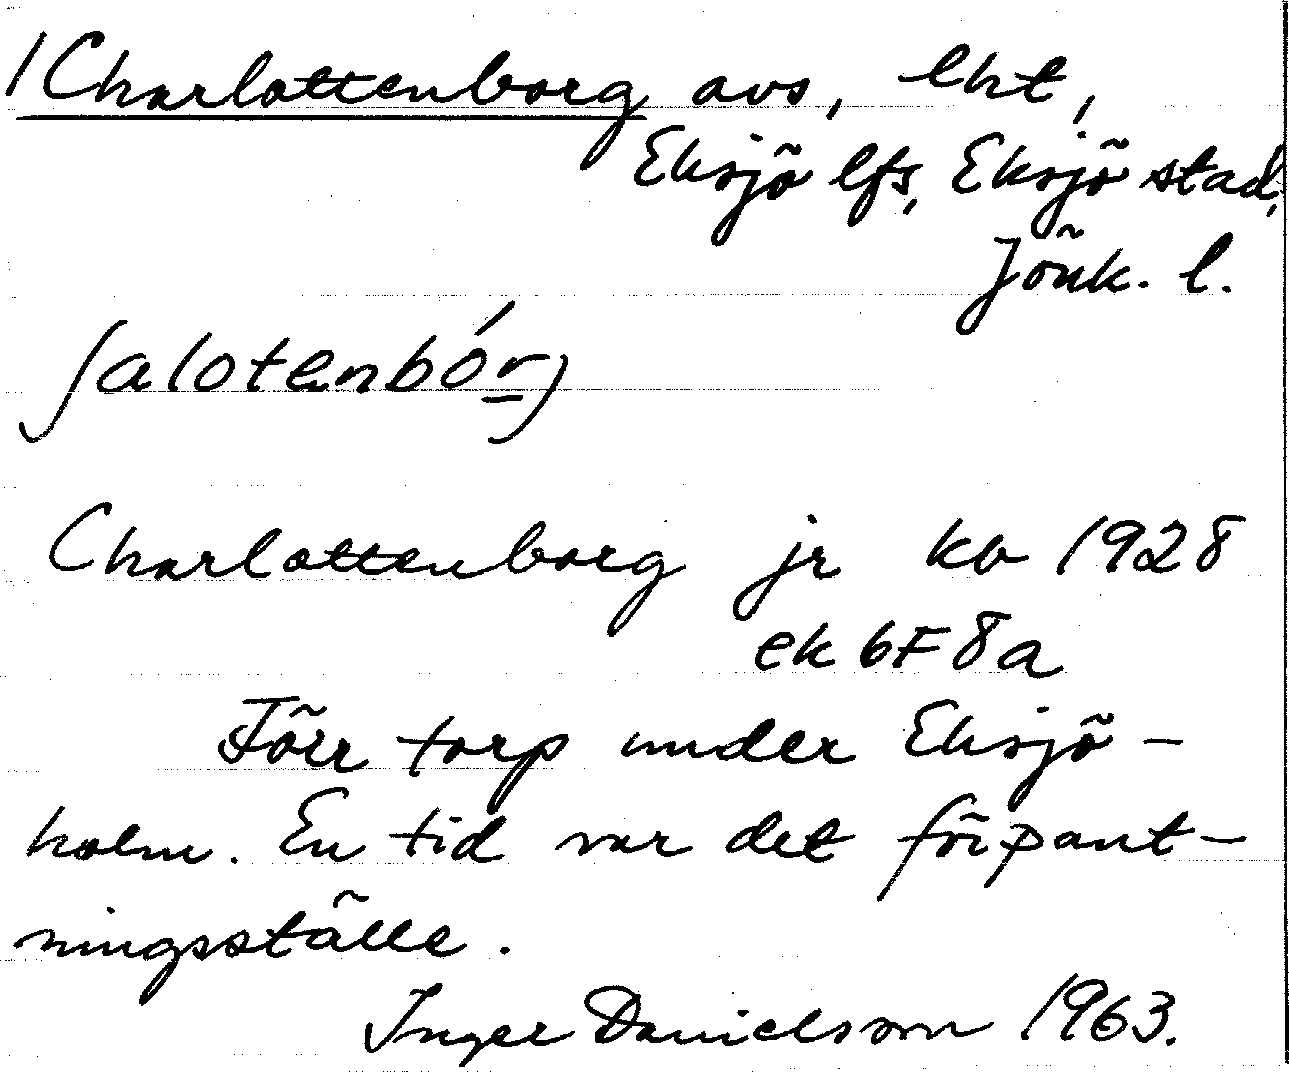 /Charlottenborg avs, lht,
Eksjö lfs, Eksjö stad,
Jönk. l.
ʃalotenbórj
Charlottenborg jr kb 1928
ek 6F8a
Förr torp under Eksjö-
holm. En tid var det förpant-
ningsställe.
Inger Danielsson 1963.